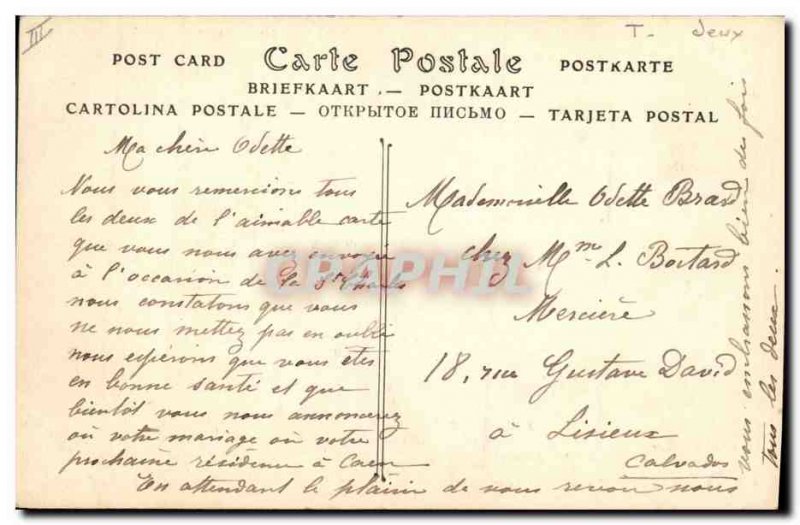 III
T. deux
POST CARD Carte Postale POSTKARTE
BRIEFKAART — POSTKAART
CARTOLINA POSTALE — ОТКРЫТОЕ ПИСЬМО — TARJETA POSTAL
Ma chère Odette
Nous vous remercions tous
les deux de l'aimable carte
que vous nous avez envoyée
à l'occasion de la St Charles
nous constatons que vous
ne nous mettez pas en oubli
nous espérons que vous êtes
en bonne santé et que
bientôt vous nous annoncerez
où votre mariage où votre
prochaine résidence à Caen
En attendant le plaisir de vous revoir nous
vous embrassons bien des fois
tous les deux.
Mademoiselle Odette Brard
chez Mme L. Bostard
Mercière
18, rue Gustave David
à Lisieux
Calvados
CPAPHIL